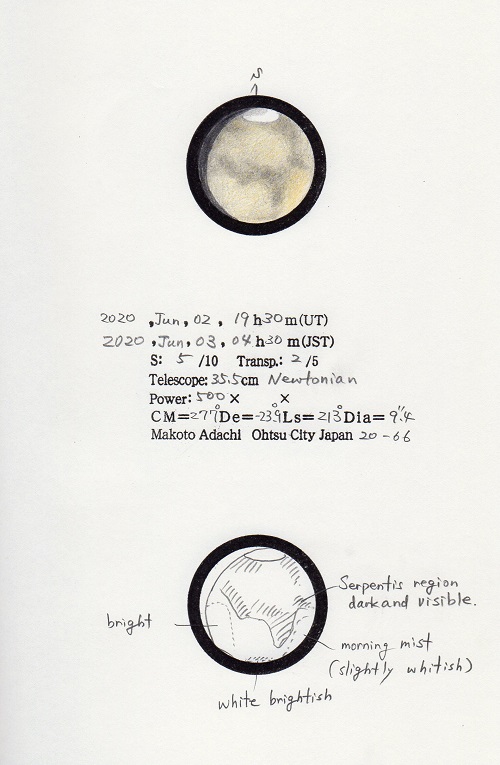 S
2020 , Jun, 02, 19 h 30 m (UT)
2020 , Jun, 03, 04 h 30 m (JST)
S: 5 /10 Transp.: 2 /5
Telescope: 35.5cm Newtonian
Power: 500 × ×
CM=277° De=-23.9° Ls=213° Dia= 9".4
Makoto Adachi Ohtsu City Japan 20-66
Serpentis region
dark and visible.
bright
morning mist
(slightly whitish)
white brightish